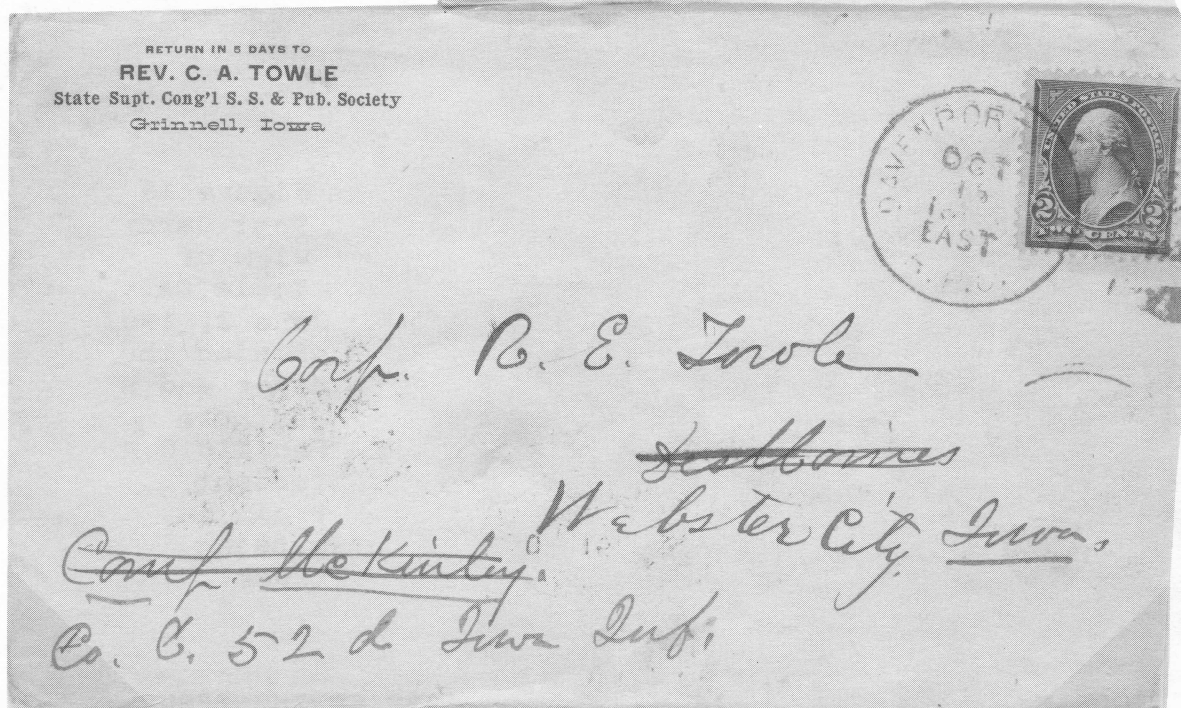 RETURN IN 5 DAYS TO
REV. C. A. TOWLE
State Supt. Cong'l S. S. & Pub. Society
Grinnell, Iowa
DAVENPORT
OCT
EAST
R.P.O.
UNITED STATES POSTAGE
2 2
TWO CENTS
Corp. R. E. Towle
Des Moines
Webster City, Iowa.
Camp. McKinley.
Co. C. 52d Iowa Inf.